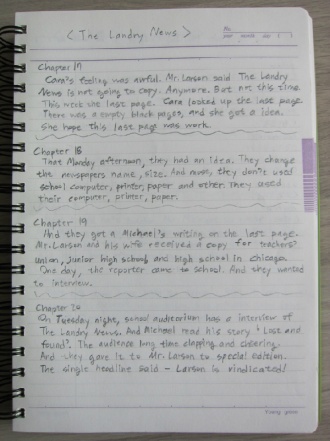 < The Landry News >
No.
year month day ( )
Chapter 17
Cara's feeling was awful. Mr. Larson said The Landry
News is not going to copy. Anymore. But not this time
This week she last page. Cara looked up the last page
There was a empty black pages, and she got a idea.
She hope this last page was work.
Chapter 18
That Monday afternoon, they had an idea. They change
the newspapers name, size. And now, they don't used
school computer, printer, paper and other. They used
their computer, printer, paper.
Chapter 19
And they got a Michael's writing on the last page.
Mr. Larson and his wife received a copy for teachers'
union, junior high school, and high school in Chicago.
One day, the reporter came to school. And they wanted
to interview.
Chapter 20
On Tuesday night, school auditorium has a interview of
The Landry News. And Michael read his story "Lost and
found". The audience long time clapping and cheering.
And they gave it to Mr. Larson to special edition.
The single headline said - Larson is vindicated!